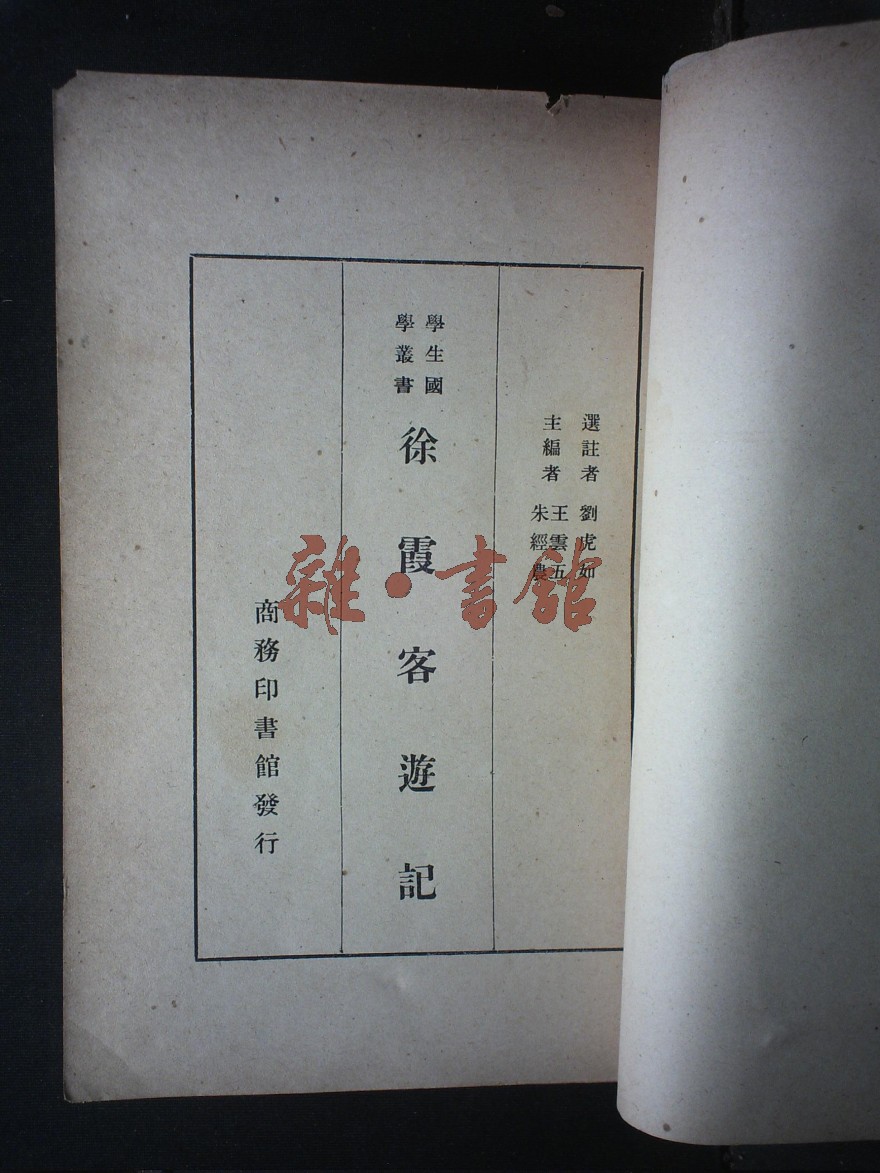 選註者 劉虎如
主編者 王雲五
朱經農
學生國
學叢書
徐霞客遊記
商務印書館發行
雜·書館